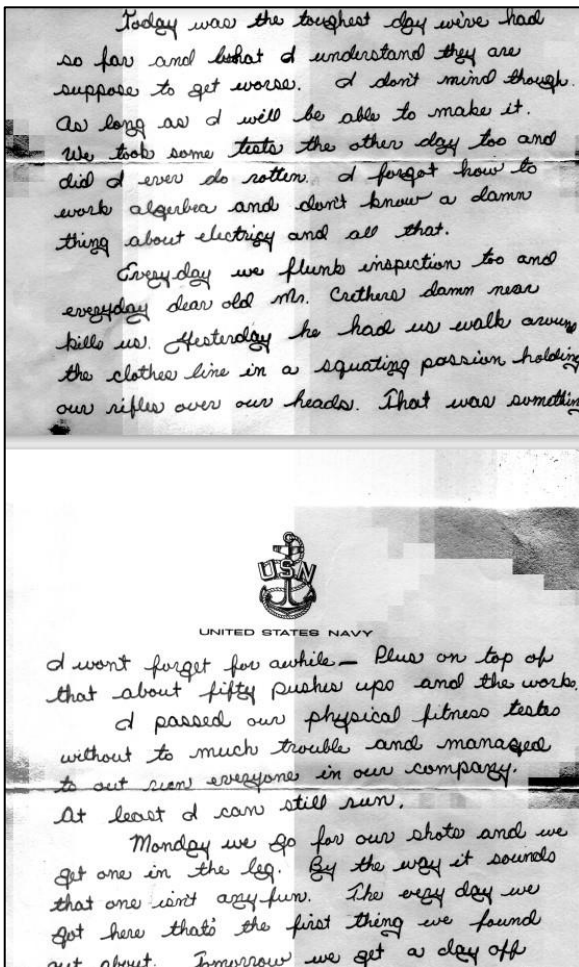 Today was the toughest day we've had
so far and what I understand they are
suppose to get worse. I don't mind though.
As long as I will be able to make it.
We took some tests the other day too and
did I ever do rotten. I forgot how to
work algerbea and don't know a damn
thing about electrigy and all that.
Every day we flunk inspection too and
everyday dear old Mr. Crethers damn near
kills us. Yesterday he had us walk around
the clothes line in a squating passion holding
our rifles over our heads. That was something
USN
UNITED STATES NAVY
I wont forget for awhile — Plus on top of
that about fifty pushes ups and the works.
I passed our physical fitness testes
without to much trouble and managed
to out run everyone in our company.
At least I can still run.
Monday we go for our shots and we
get one in the leg. By the way it sounds
that one isn't any fun. The very day we
got here that's the first thing we found
out about. Tomorrow we get a day off